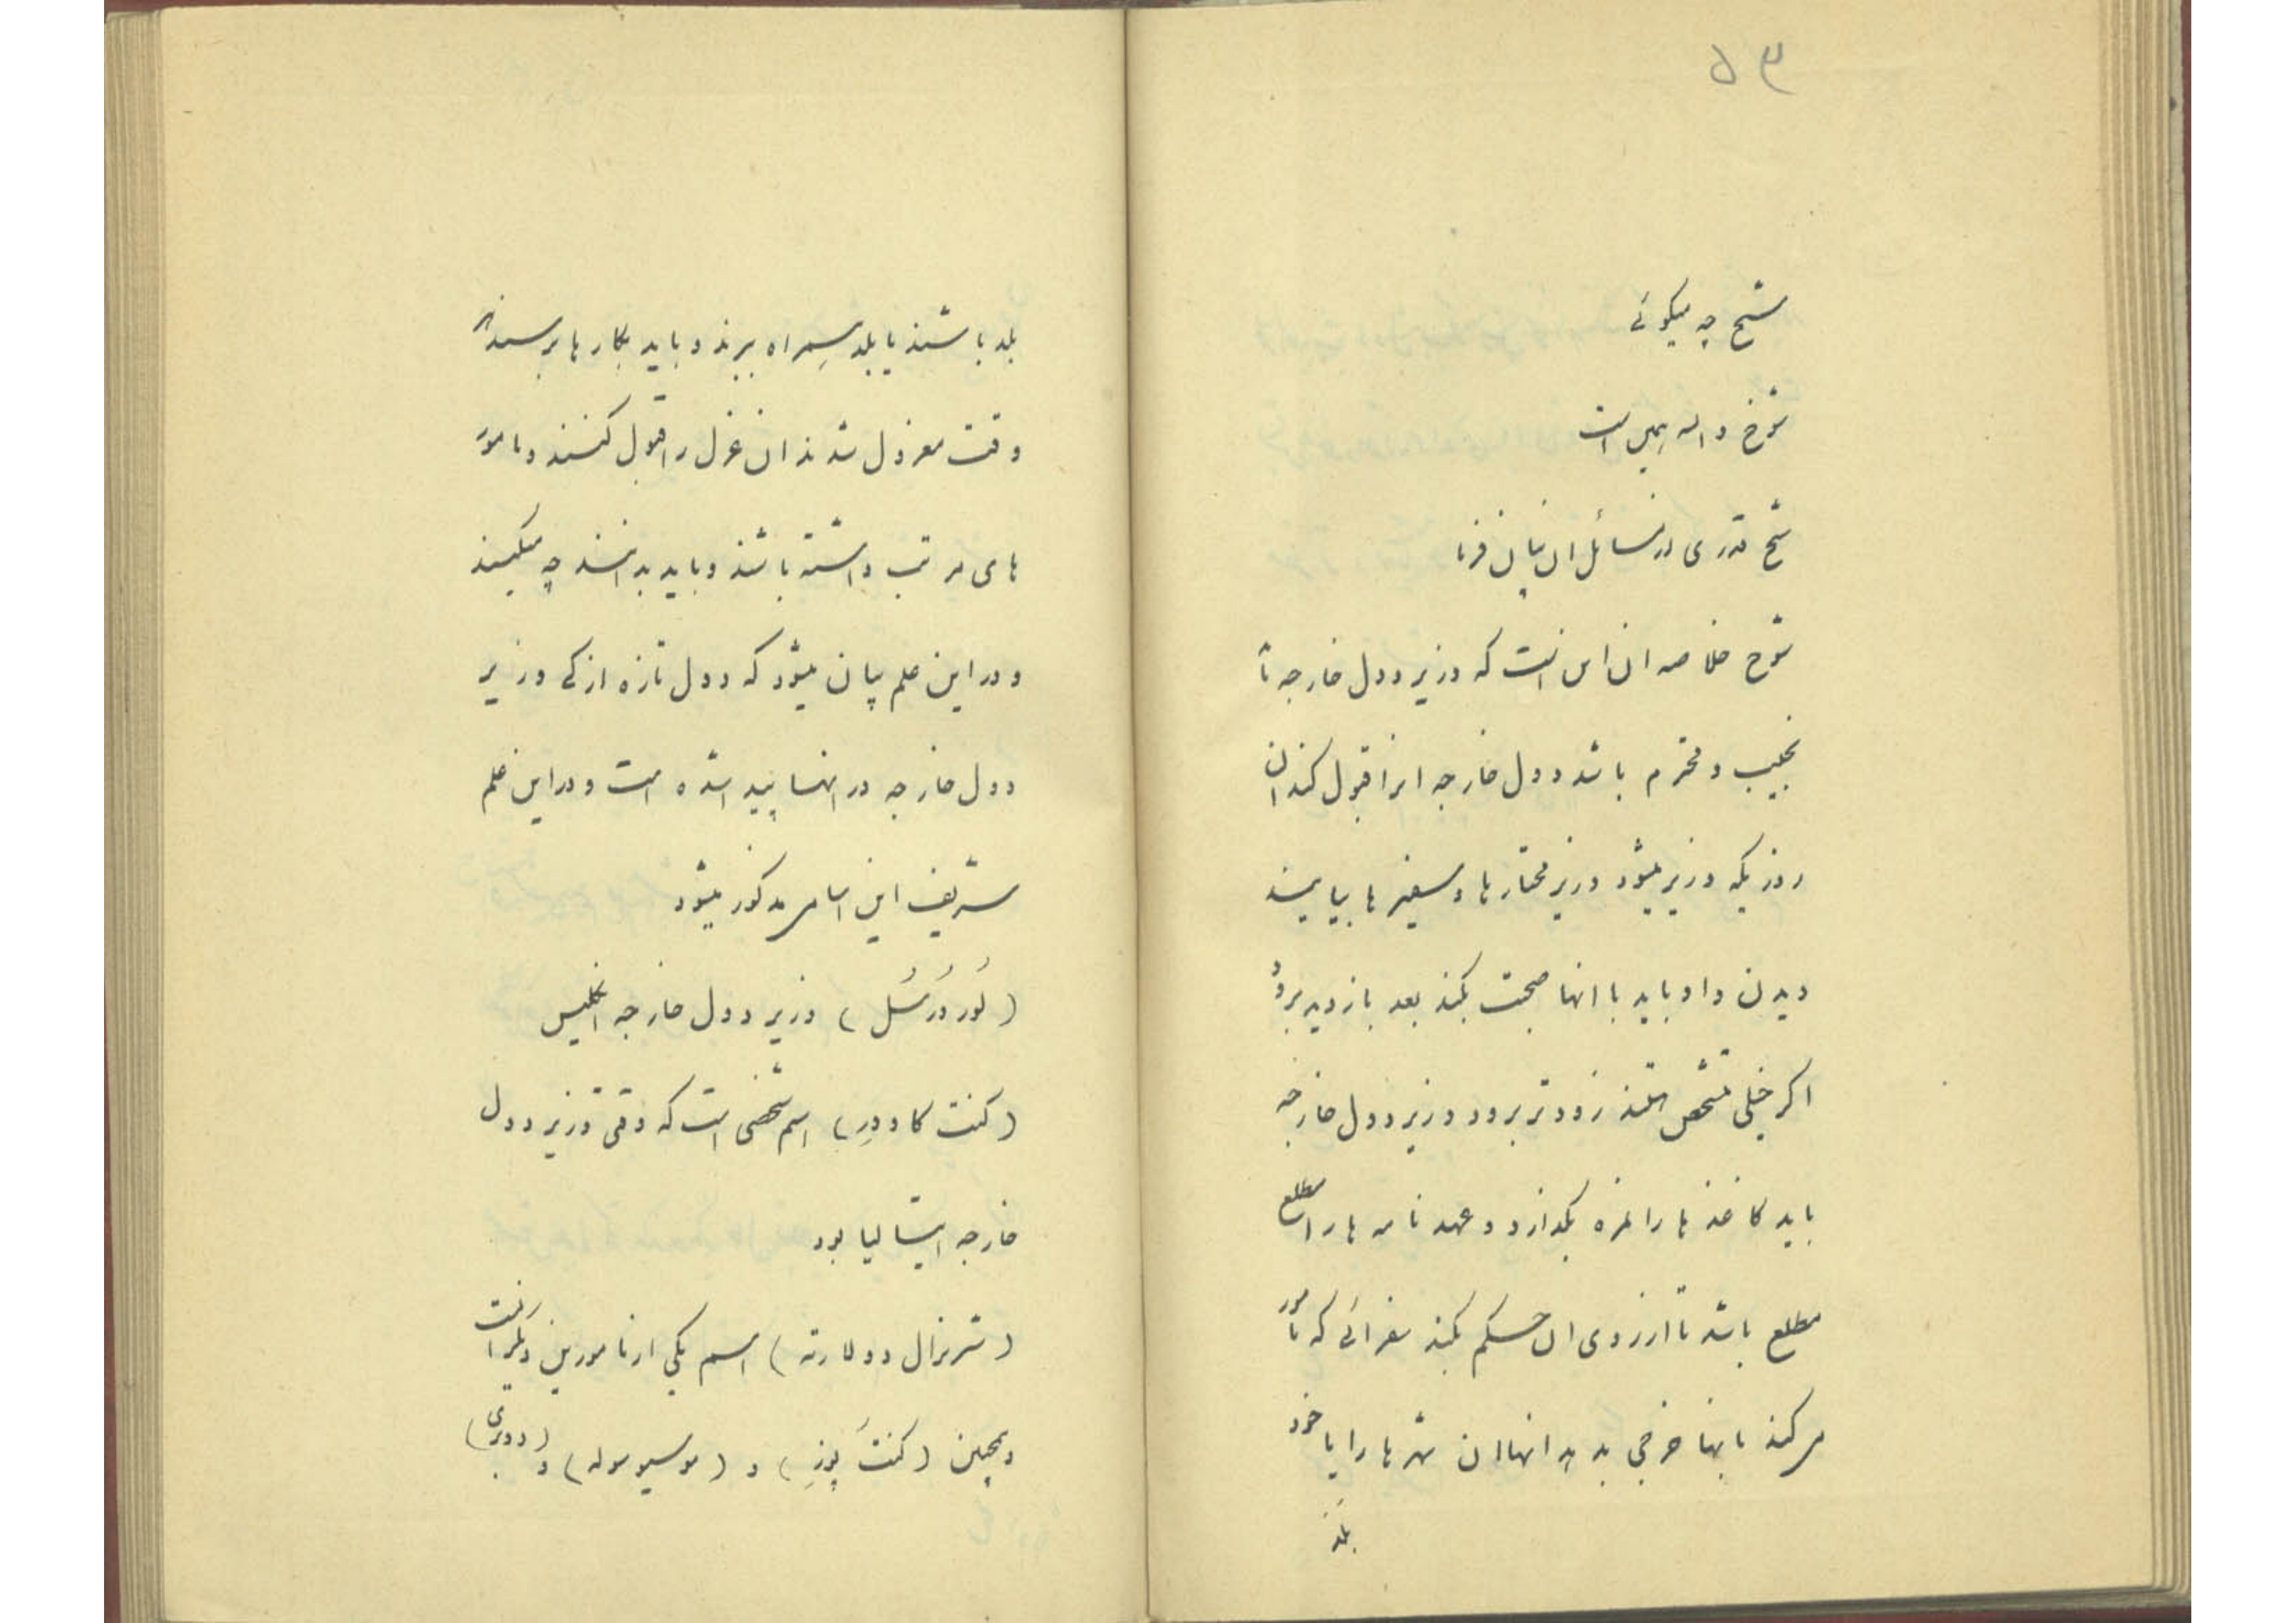 ۵۳
شیخ چه میکوئی
شوخ واله همین است
شیخ قدری در مسائل ان بیان فرما
شوخ خلاصه ان این است که وزیر دول خارجه تا
نجیب و محترم باشد دول خارجه انرا قبول کنند ان
روزیکه وزیر میشود وزیر مختارها و سفیرها بیایند
دیدن و او باید با انها صحبت بکند بعد بازدید برود
اکر خیلی متشخص هستند زودتر برود وزیر دول خارجه
باید کاغذ ها را نمره بکذارد و عهد نامه ها را مطلع
مطلع باشد تا از روی ان حکم بکند سفرائی که مامور
میکند بانها خرجی بدهد انها ان شهرها را یا خود
بلد
بلد باشند یا بلد همراه ببرند و باید بکارها برسند هر
وقت معزول شدند ان عزل را قبول کنند و مامور
های مرتب داشته باشند و باید بدانند چه میکنند
و در این علم بیان میشود که دول تازه از کی وزیر
دول خارجه در انها پیدا شده است و در این علم
شریف این اسامی مذکور میشود
(لُورد رُسُل) وزیر دول خارجه انکلیس
(کنت کاوور) اسم شخصی است که وقتی وزیر دول
خارجه ایتالیا بود
( شرنرال دولارته ) اسم یکی از مامورین دیکر است
و همچنین (کنت پوز) و (موسیو موله) و (دوبری)